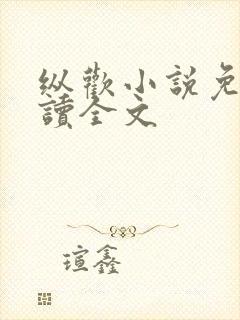 纵歡小說免
讀全文
瑄鑫